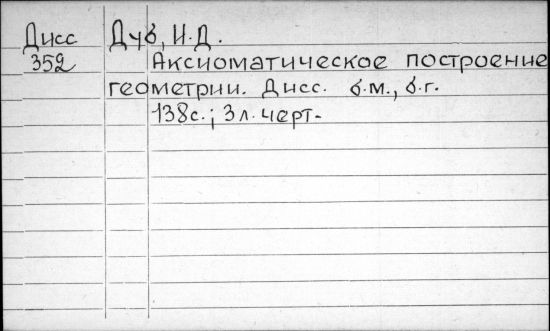 Дисс Дуб, И.Д.
352 Аксиоматическое построение
геометрии. Дисс. б.м., б.г.
138с.; 3л. черт.